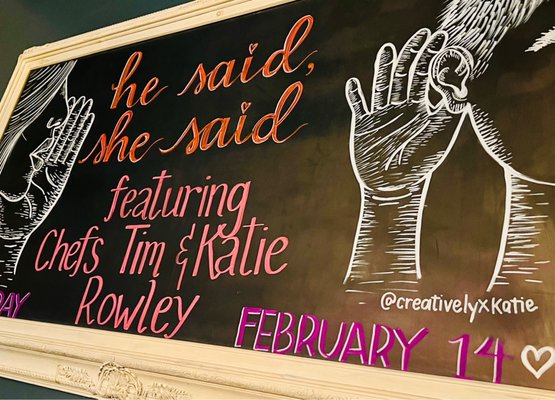 he said,
she said
featuring
Chefs Tim & Katie
Rowley
@creativelyxKatie
FEBRUARY 14